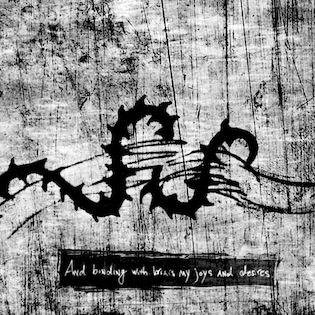 And binding with briars my joys and desires